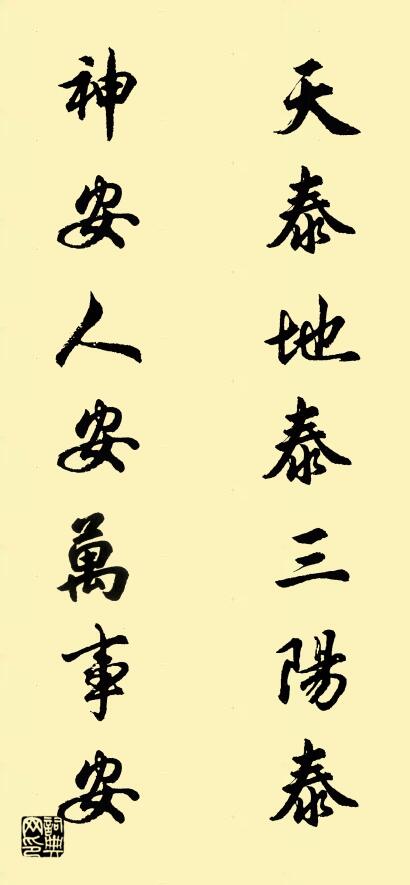 天泰地泰三陽泰
神安人安萬事安
詞典网印